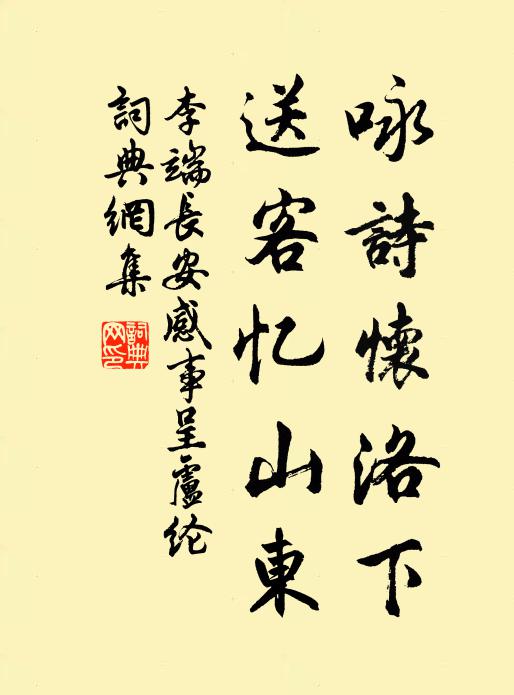 咏詩懷洛下
送客忆山東
李端長安感事呈盧纶
詞典網集
詞典网印